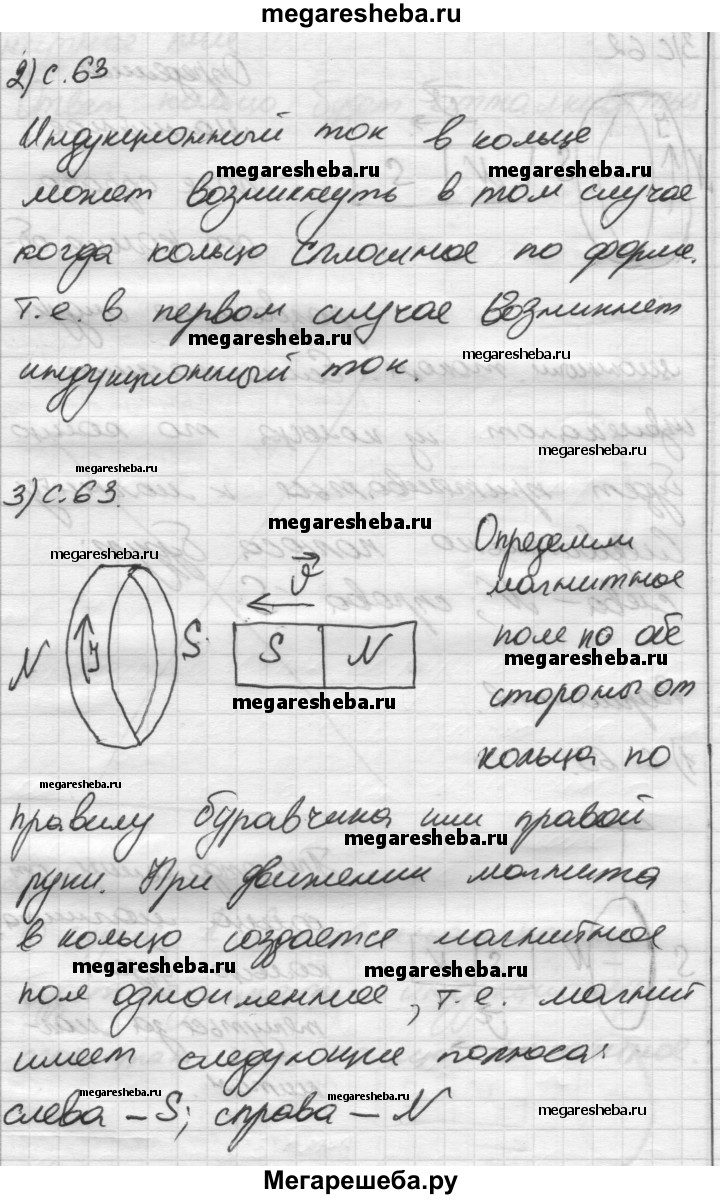 megaresheba.ru
2) с. 63
Индукционный ток в кольце
megaresheba.ru megaresheba.ru
может возникнуть в том случае
когда кольцо сплошное по форме.
т.е. в первом случае возникнет
megaresheba.ru megaresheba.ru
индукционный ток.
megaresheba.ru
megaresheba.ru
3) с. 63.
megaresheba.ru
megaresheba.ru
Определили
магнитное
поле по обе
megaresheba.ru
стороны от
кольца по
N S. S N
megaresheba.ru
megaresheba.ru
правилу буравчика или правой
megaresheba.ru
руки. При движении магнита
в кольцо создается магнитное
megaresheba.ru megaresheba.ru
поле одноименное, т.е. магнит
имеет следующие полюса:
megaresheba.ru megaresheba.ru megaresheba.ru
слева – S; справа – N
Мегарешеба.ру